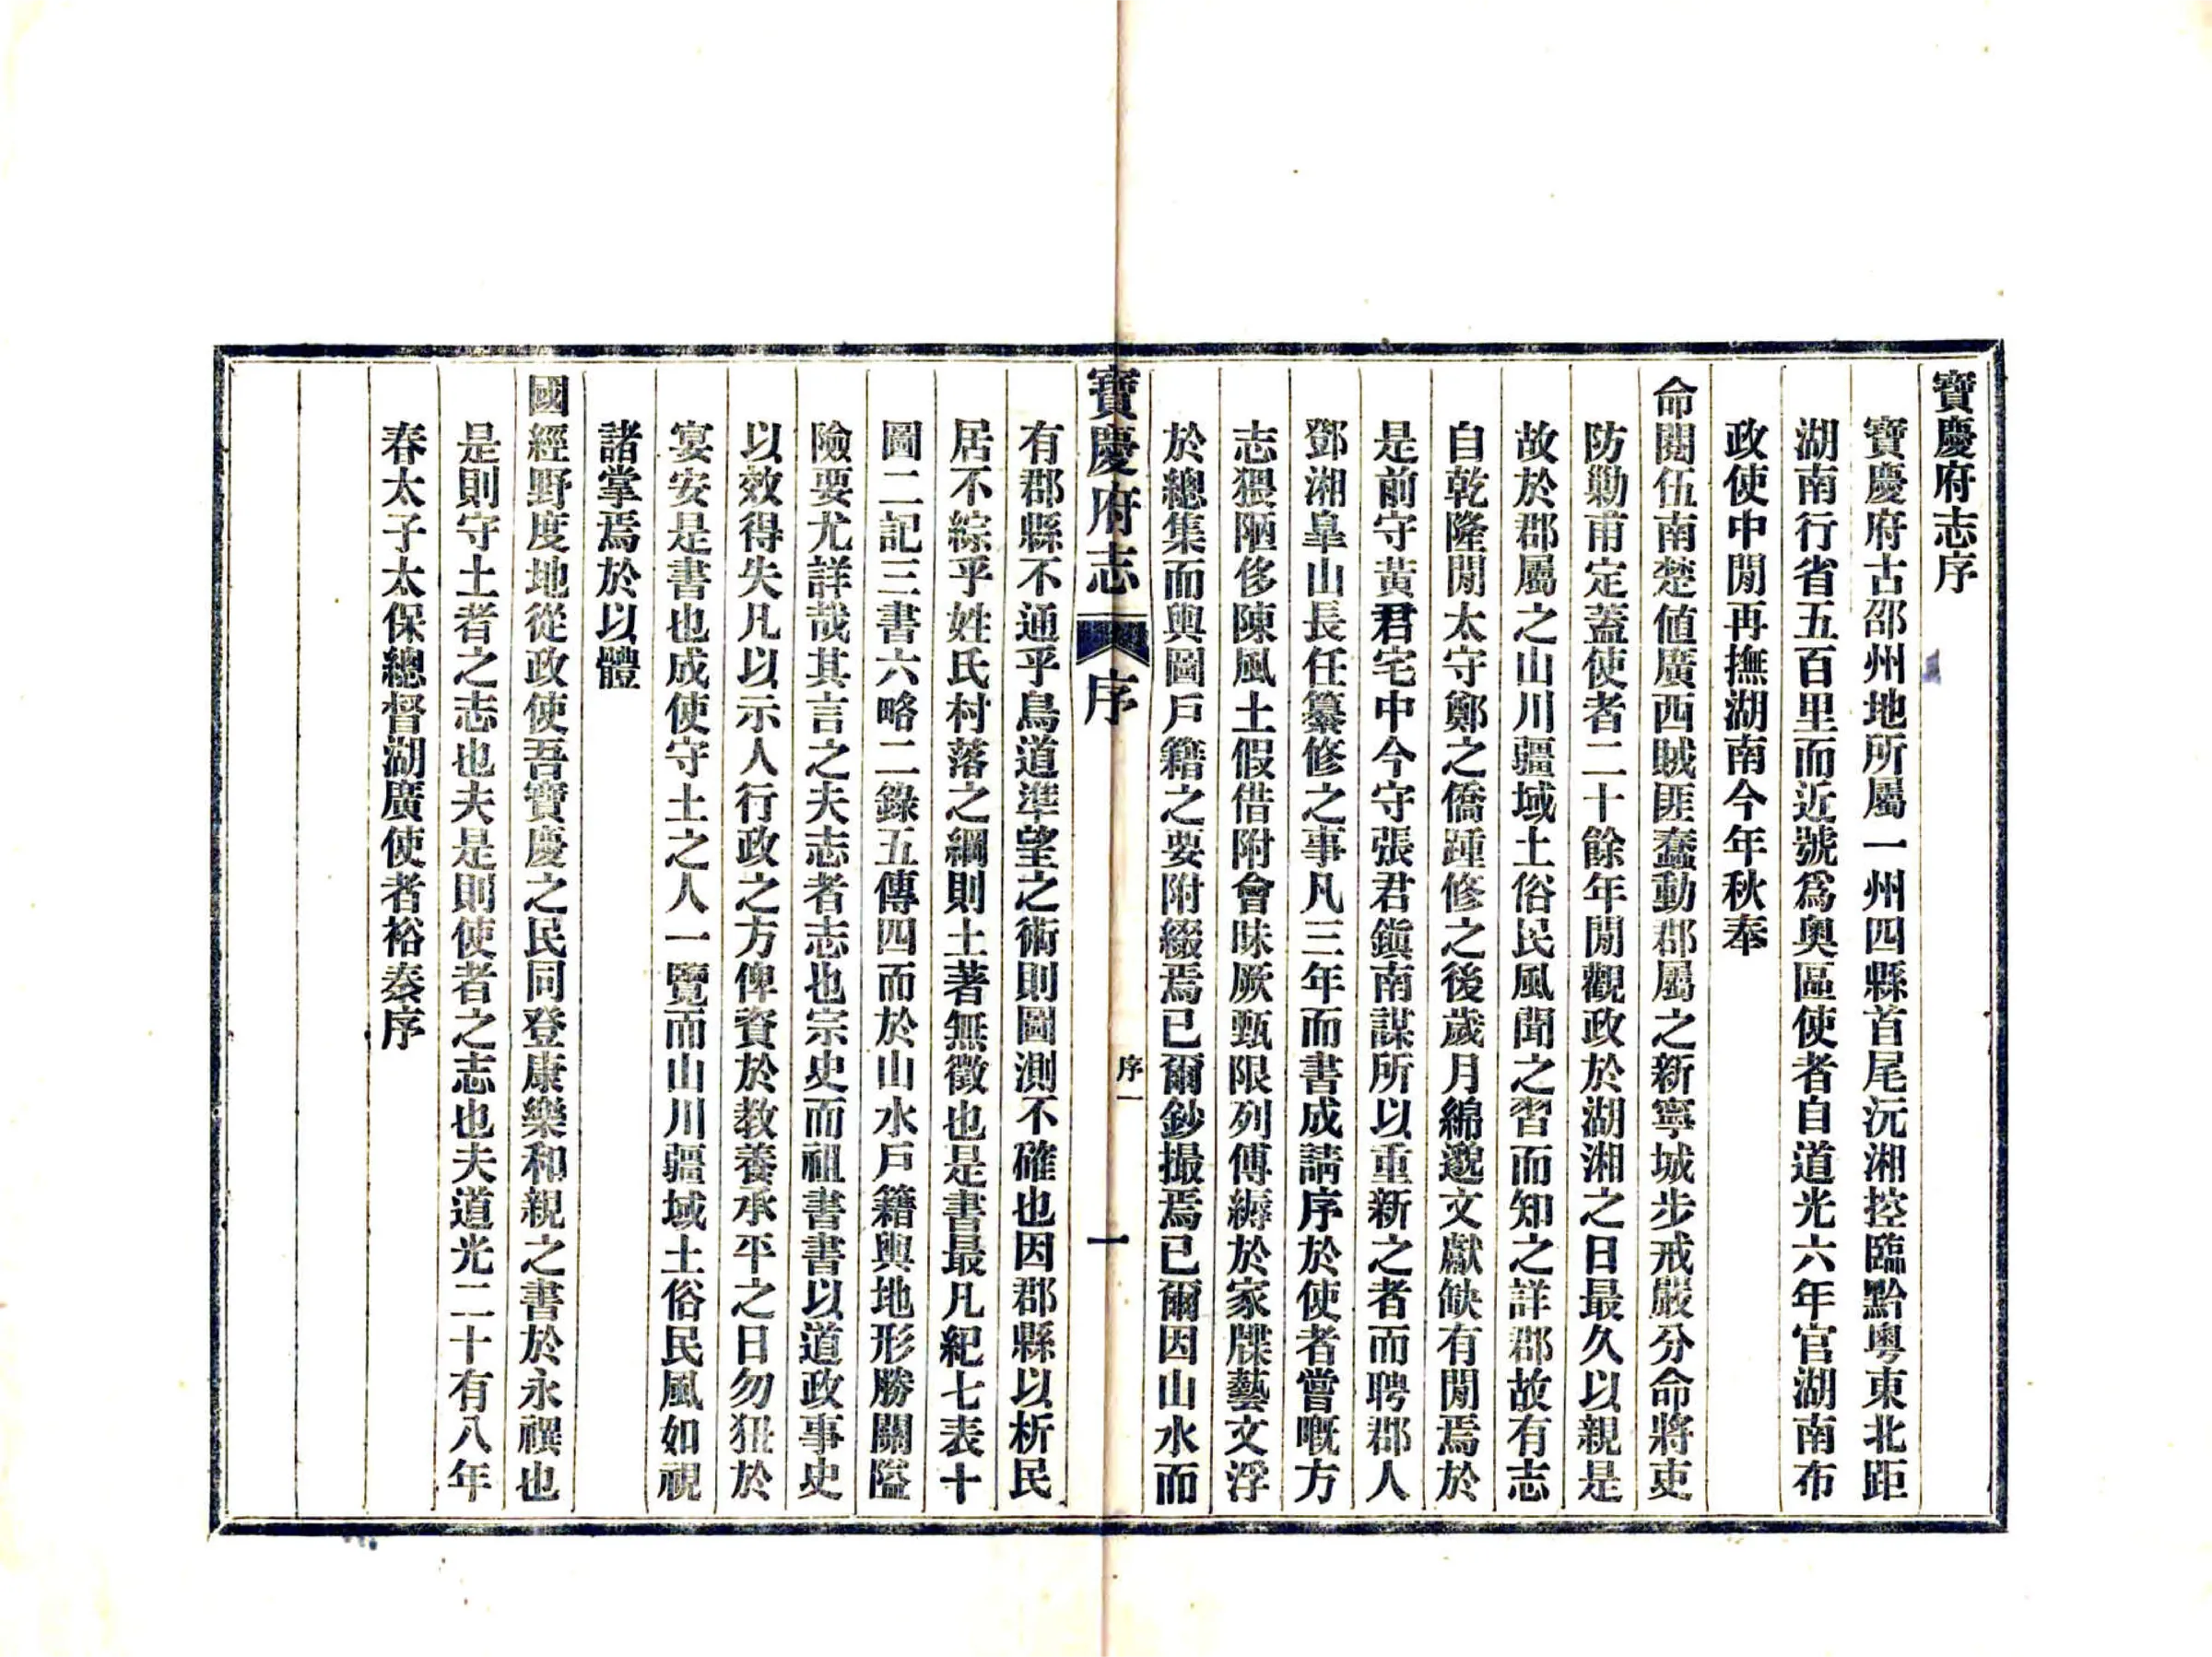 寶慶府志序
寶慶府古邵州地所屬一州四縣首尾沅湘控臨黔粵東北距
湖南行省五百里而近號爲奧區使者自道光六年官湖南布
政使中閒再撫湖南今年秋奉
命閱伍南楚値廣西賊匪蠢動郡屬之新寧城步戒嚴分命將吏
防勦甫定蓋使者二十餘年閒觀政於湖湘之日最久以親是
故於郡屬之山川疆域土俗民風聞之習而知之詳郡故有志
自乾隆閒太守鄭之僑踵修之後歲月綿邈文獻缺有閒焉於
是前守黃君宅中今守張君鎭南謀所以重新之者而聘郡人
鄧湘皐山長任纂修之事凡三年而書成請序於使者嘗嘅方
志猥陋侈陳風土假借附會昧厥甄限列傳縟於家牒藝文浮
於總集而輿圖戶籍之要附綴焉已爾鈔撮焉已爾因山水而
寶慶府志 序 序一 一
有郡縣不通乎鳥道準望之術則圖測不確也因郡縣以析民
居不綜乎姓氏村落之綱則土著無徵也是書最凡紀七表十
圖二記三書六略二錄五傳四而於山水戶籍輿地形勝關隘
險要尤詳哉其言之夫志者志也宗史而祖書書以道政事史
以效得失凡以示人行政之方俾資於教養承平之日勿狃於
宴安是書也成使守土之人一覽而山川疆域土俗民風如視
諸掌焉於以體
國經野度地從政使吾寶慶之民同登康樂和親之書於永禩也
是則守土者之志也夫是則使者之志也夫道光二十有八年
春太子太保總督湖廣使者裕泰序